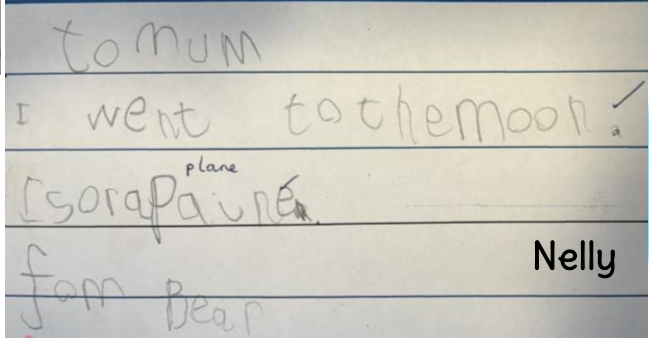 to mum
I went tothemoon.
plane
Isorapaune.
Nelly
fom Bear